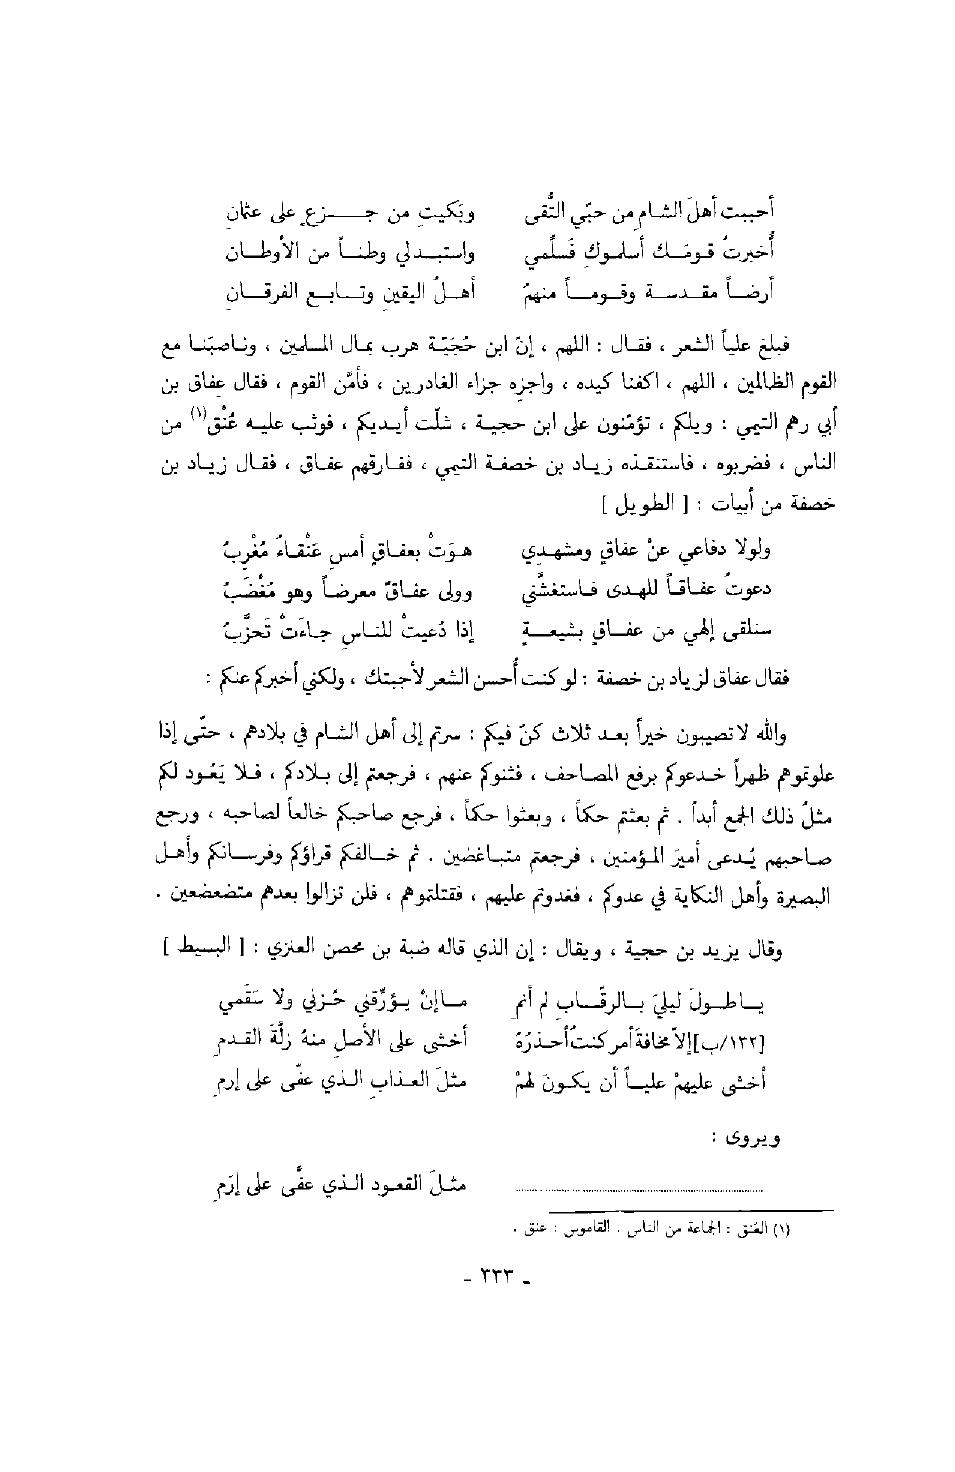 أحببت أهلَ الشام من حبّي التُّقى وبَكيتِ من جزعٍ على عثمانِ
أُخبرتُ قومَك أسلموكِ فَسلِّمي واستبدلي وطناً من الأوطانِ
أرضاً مقدسة وقوماً منهمُ أهلُ اليقينِ وتابعِ الفرقانِ
فبلغ علياً الشعر ، فقال : اللهم ، إنّ ابن حُجَيّة هرب بمال المسلمين ، وناصبَنا مع
القوم الظالمين ، اللهم ، اكفنا كيده ، واجزِه جزاء الغادرين ، فأمّن القوم ، فقال عِفاق بن
أبي رهم التيمي : ويلكم ، تؤمّنون على ابن حجية ، شلّت أيديكم ، فوثب عليه عُنْق(١) من
الناس ، فضربوه ، فاستنقذه زياد بن خصفة التيمي ، ففارقهم عفاق ، فقال زياد بن
خصفة من أبيات : [ الطويل ]
ولولا دفاعي عنْ عفاقٍ ومشهدي هوَتْ بعفاقٍ أمسِ عَنْقاءُ مُغْرِبُ
دعوتُ عفاقاً للهدى فاستغشَّني وولى عفاقٌ معرضاً وهو مُغْضَبُ
سنلقى إلهي من عفاقٍ بشيعةٍ إذا دُعيتْ للناسِ جاءَتْ تَحزَّبُ
فقال عفاق لزياد بن خصفة : لو كنت أُحسن الشعر لأجبتك ، ولكني أُخبركم عنكم :
والله لا تصيبون خيراً بعد ثلاث كنّ فيكم : سرتم إلى أهل الشام في بلادهم ، حتّى إذا
علوتموهم ظهراً خدعوكم برفع المصاحف ، فثنوكم عنهم ، فرجعتم إلى بلادكم ، فلا يَعُود لكم
مثلُ ذلك الجمع أبداً . ثم بعثتم حكماً ، وبعثوا حكماً ، فرجع صاحبكم خالعاً لصاحبه ، ورجع
صاحبهم يُدعى أميرَ المؤمنين ، فرجعتم متباغضين . ثم خالفكم قراؤكم وفرسانكم وأهل
البصيرة وأهل النكاية في عدوكم ، فغدوتم عليهم ، فقتلتموهم ، فلن تزالوا بعدهم متضعضعين .
وقال يزيد بن حجية ، ويقال : إن الذي قاله ضبة بن محصن العنزي : [ البسيط ]
ياطولَ ليليَ بالرقابِ لم أنمِ ماإنْ يؤرِّقني حُزني ولا سَقَمي
[١٣٢/ب]إلاّ مخافةَ أمر كنتُ أحذرُهُ أخشى على الأصلِ منهُ زلَّةَ القدمِ
أخشى عليهمْ علياً أن يكونَ لهمْ مثلَ العذابِ الذي عفّى على إرمِ
ويروى :
.......................... مثلَ القعود الذي عفَّى على إرَمِ
(١) العُنق : الجماعة من الناس . القاموس : عنق .
- ٣٣٣ -